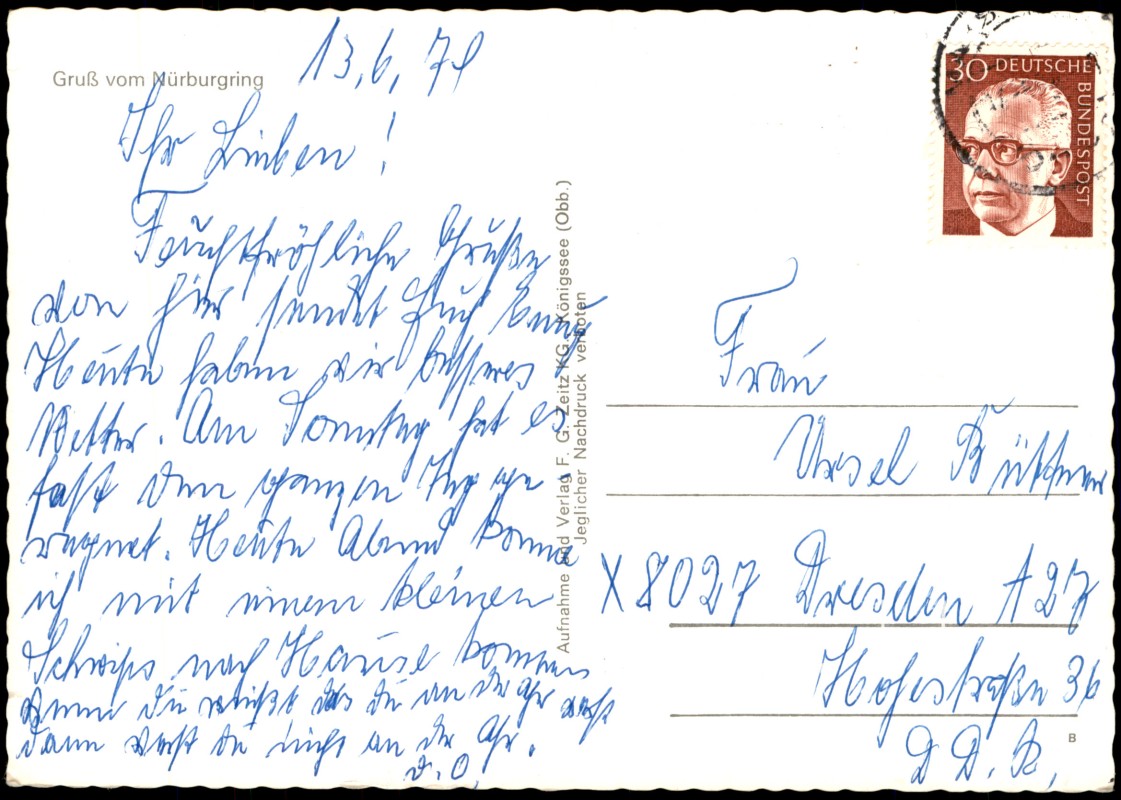 Gruß vom Nürburgring
13,6,71
Ihr Lieben!
Feuchtfröhliche Grüße
von hier sendet Euch
Heute haben wir besseres
Wetter. Am Sonntag hat es
fast den ganzen Tag ge
regnet. Heute Abend komme
ich mit einem kleinen
Schwips nach Hause kommen
Denn Du weißt das Du an der Ahr warst
dann warst Du nicht an der Ahr.
d. O.
Aufnahme und Verlag F. G. Zeitz KG., Königssee (Obb.)
Jeglicher Nachdruck verboten
30 DEUTSCHE
BUNDESPOST
Frau
Ursel Büttner
X 8027 Dresden A 27
Hohestraße 36
D D. R.
B